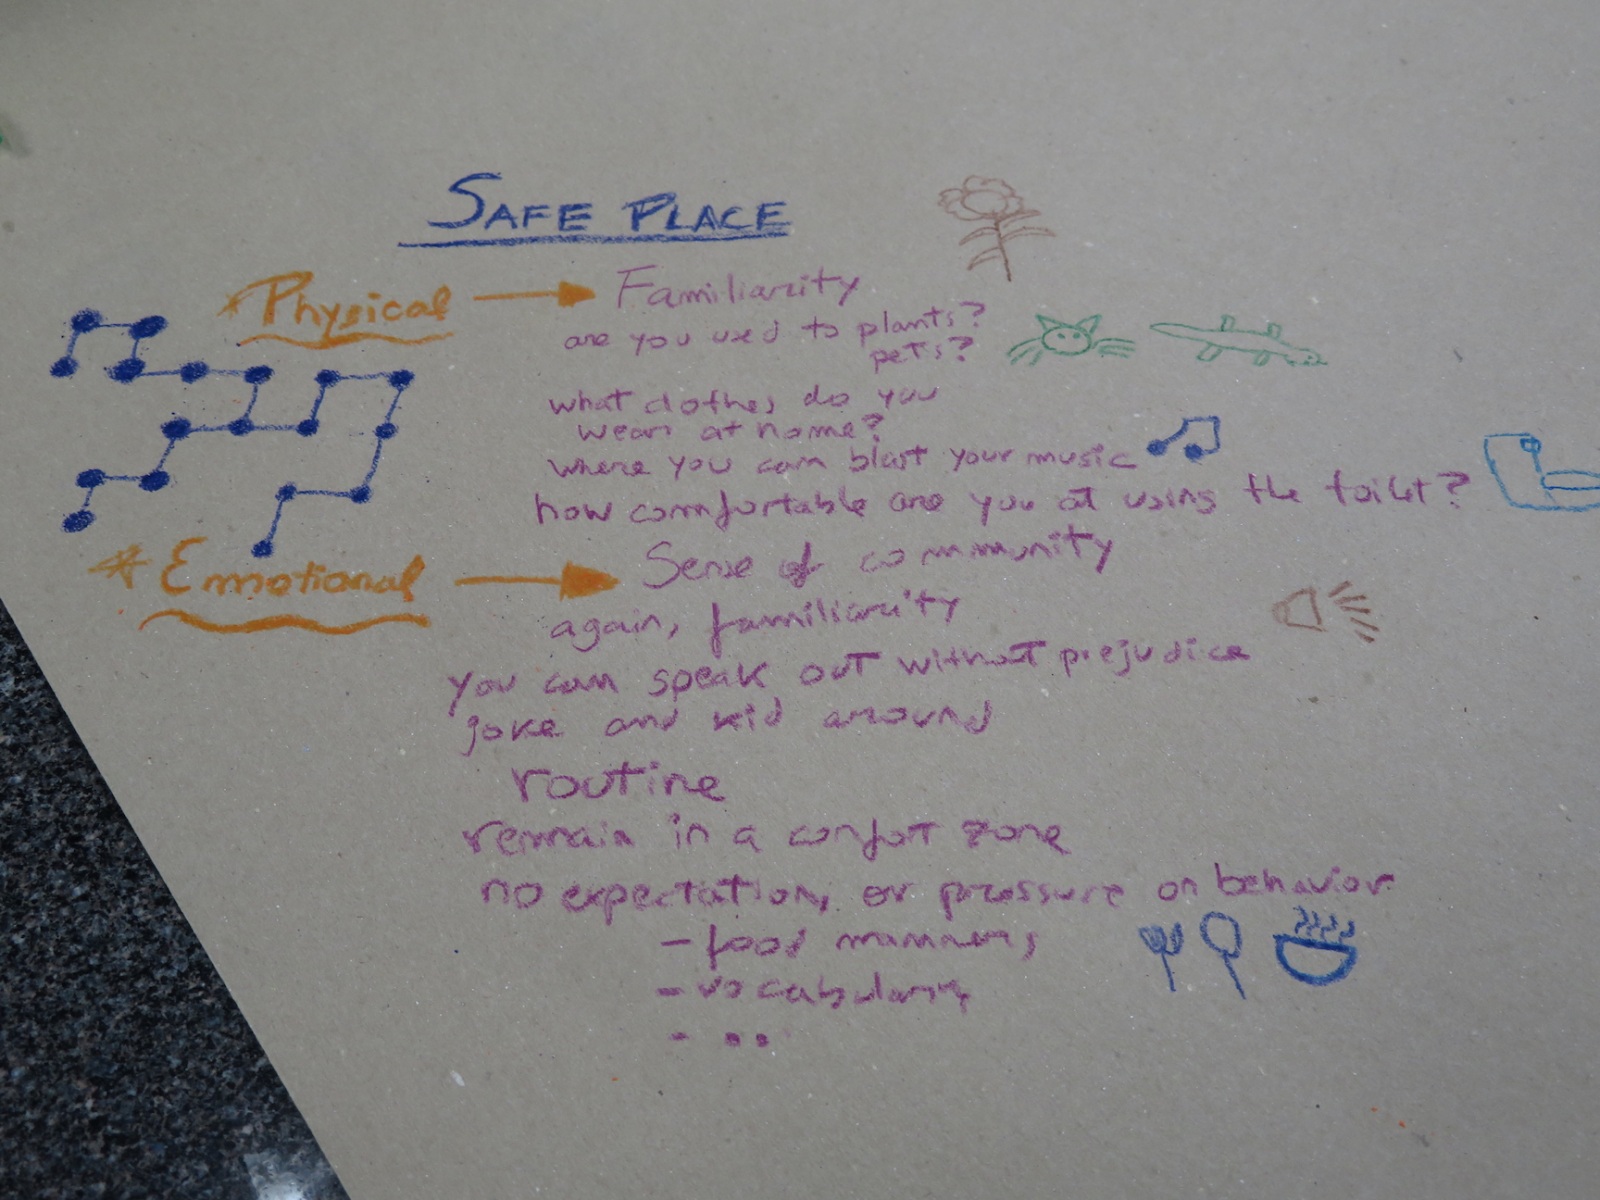 SAFE PLACE
* Physical → Familiarity
are you used to plants?
pets?
what clothes do you
wear at home?
where you can blast your music
how comfortable are you at using the toilet?
* Emotional → Sense of community
again, familiarity
you can speak out without prejudice
joke and kid around
routine
remain in a confort zone
no expectations or pressure on behavior
- food manners
- vocabulary
- ..